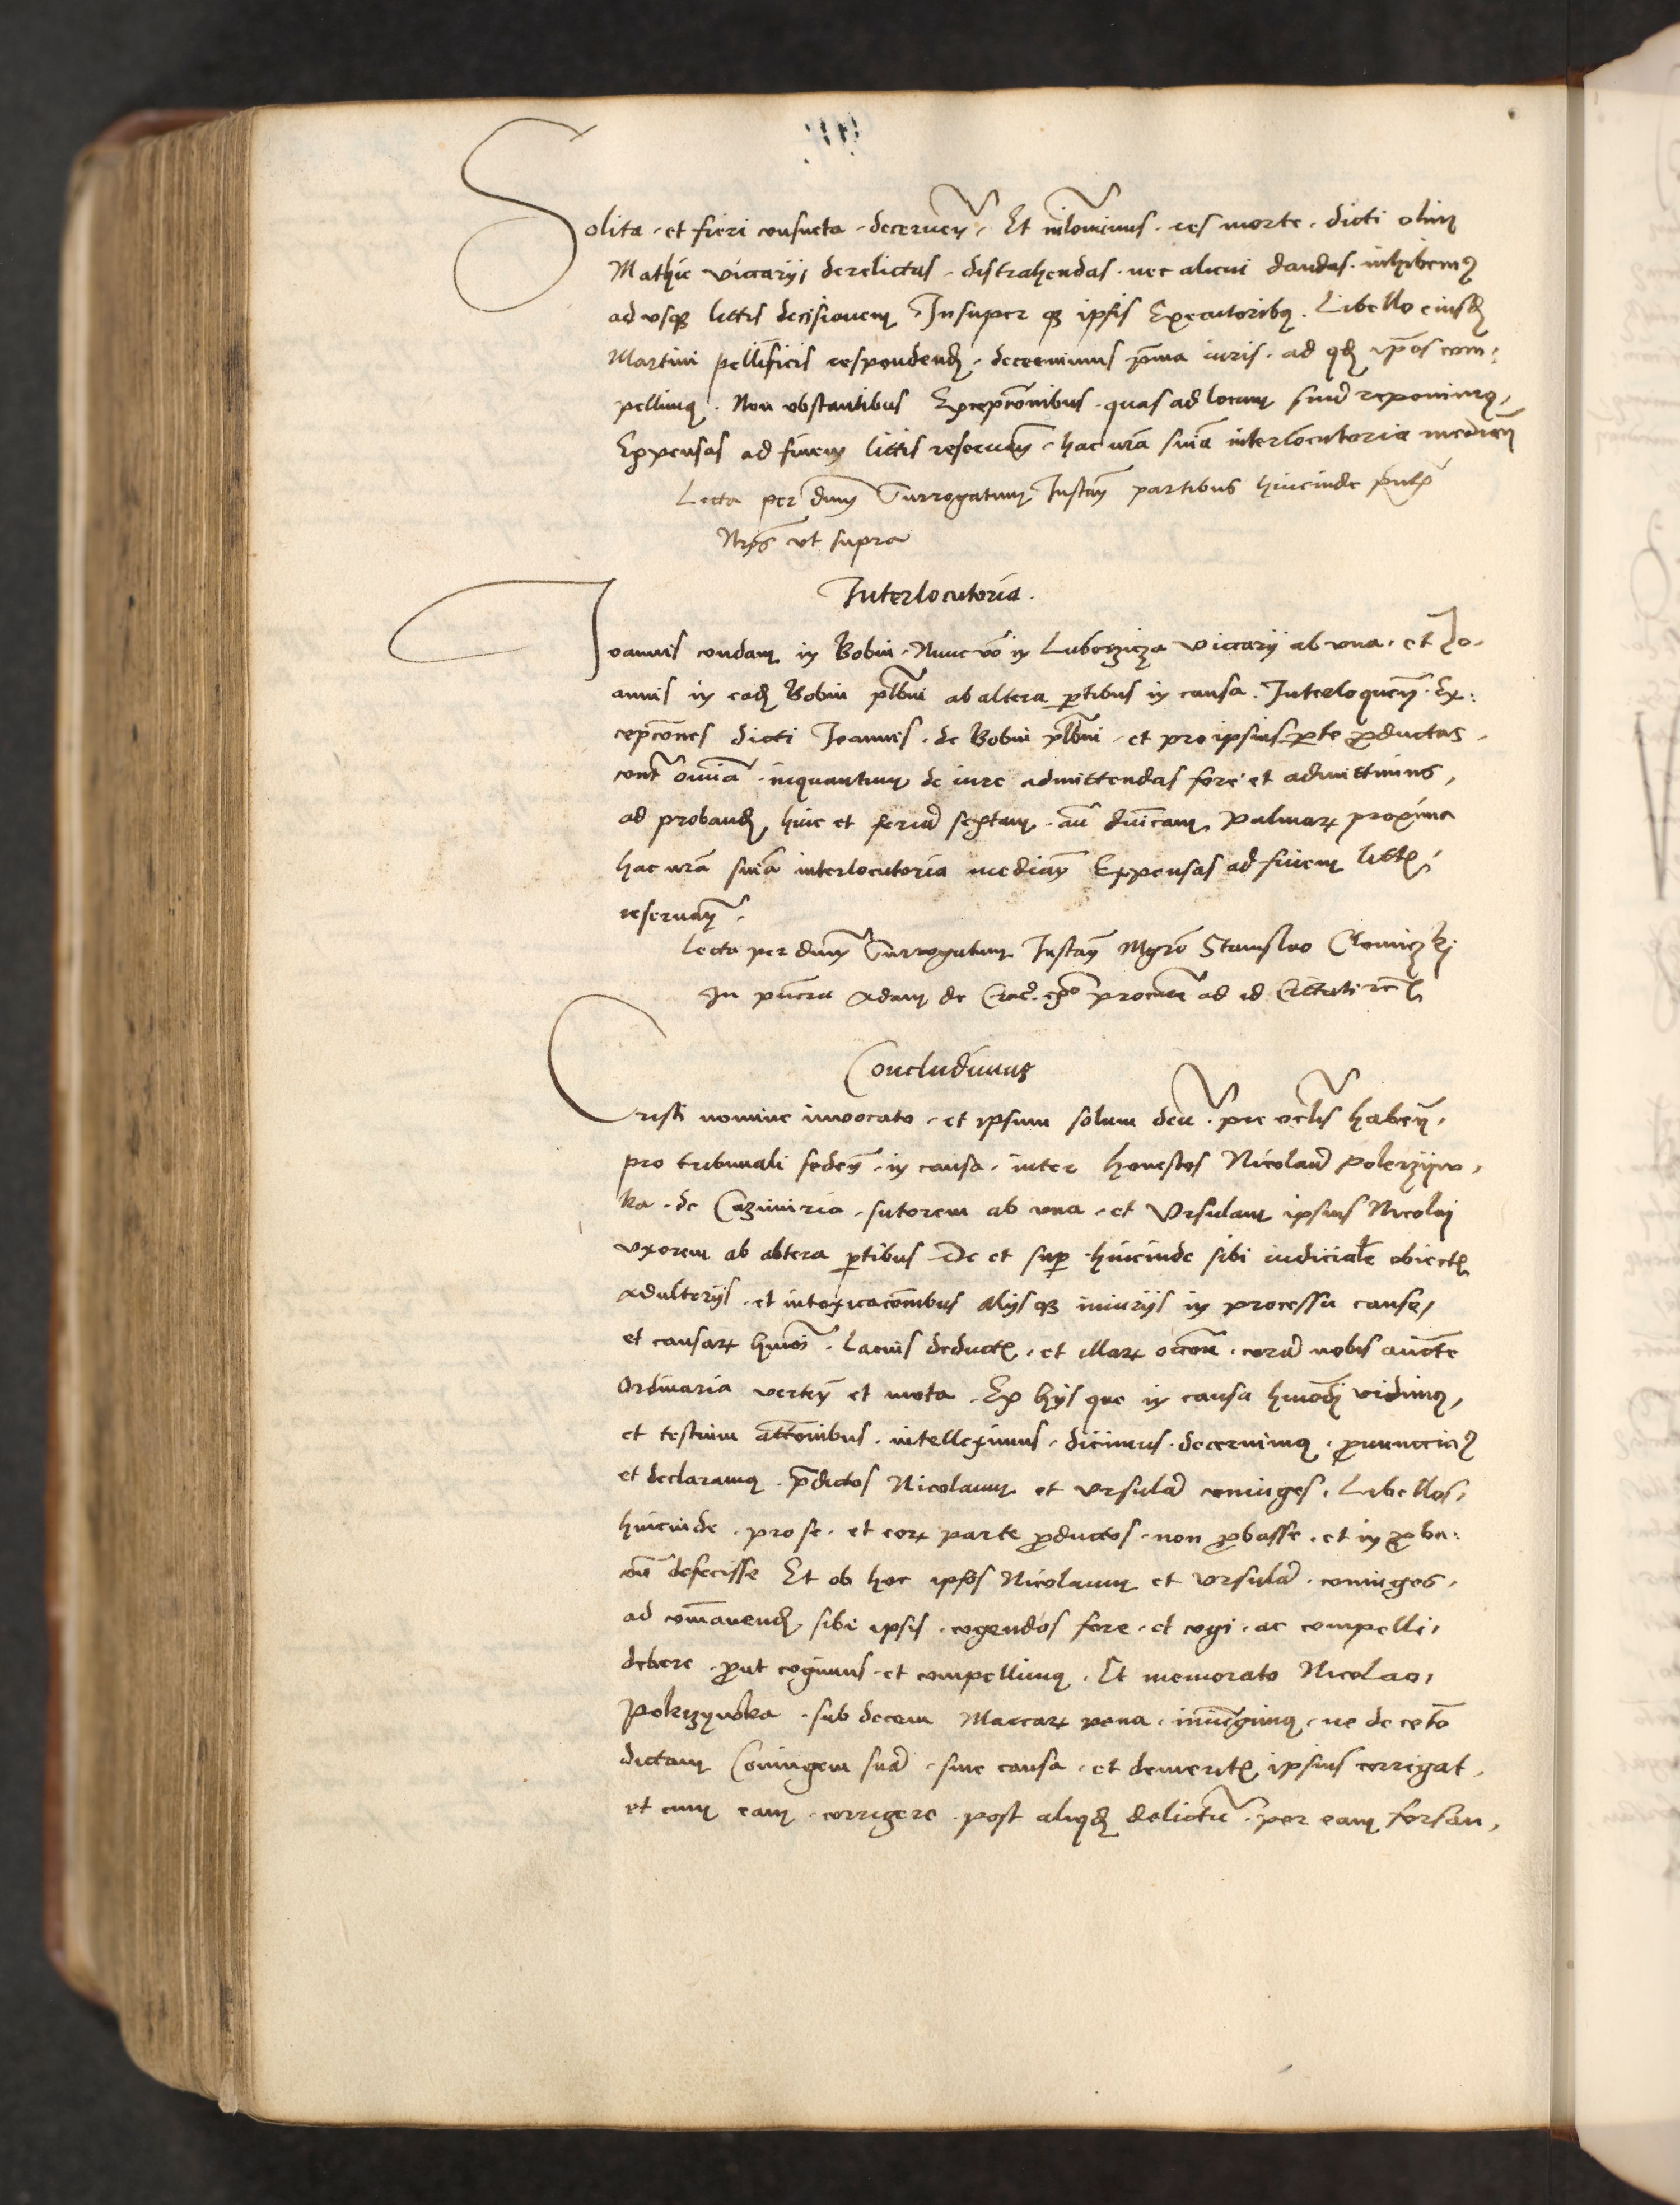 Solita · et fieri consueta · decerneñ · Et nihilominus · res morte · dicti olim
Mathie viccarij derelictas · distrahendas · nec alicui dandas · inhibemꝰ
ad vsqꝫ littis decisionem Insuper qꝫ ipsis Executoribꝰ · Libello eiusdꝫ
Martini pellificis respondendꝫ · decernimus p̄ma iuris · ad qdꝫ ip̄os com:
pellimꝰ · Non obstantibus Excepc̄onibus · quas ad locum suū reponimꝰ,
Expensas ad finem littis reserueñ · hac nr̄a sn̄ia interlocutoria medieñ
Lecta per dnm̄ Surrogatum Instañ partibus hincinde
Nr̄ijs vt supra
Interlocutoria ·
Joannis condam in Bobin · Nunc v̄o in Luborzicza viccarij ab vna · et Jo-
annis in eadꝫ Bobin plb̄ni ab altera p̄tibus in causa · Interloqueñ · Ex:
cepc̄ones dicti Joannis · de Bobin plb̄ni · et pro ipsius p̄te p̄ductas ·
cont̄ om̄ia · inquantum de iure admittendas fore et admittimus,
ad probandꝫ hinc et feriā sextam · añ dn̄icam Palmaꝝ proxima
hac nr̄a sn̄ia interlocutoria mediañ Expensas ad finem litt̄ꝫ
reseruañ ·
Lecta per dnm̄ Surrogatum Instañ Mgr̄o Stanislao Clomiczkj
In pn̄cia Adam de Crac̄ · ad id
Concludimus
Cristi nomine inuocato · et ipsum solum deū · pre oclis habeñ ·
pro tribunali sedeñ · in causa · inter honestos Nicolaū Pokrzyw ·
ka · de Cazimiria · sutorem ab vna · et Vrsulam ipsius Nicolaj
vxorem ab altera p̄tibus De et sup̄ hincinde sibi iudicialr̄ obiectꝫ
adulterijs · et intoxicac̄onibus alijsqꝫ iniurijs in processu cause,
et causaꝝ hmōi · Lacius deductꝫ · et illaꝝ occ̄one · corā nobis auct̄te
Ordinaria verteñ et mota · Ex hijs que in causa hmōdj vidimꝰ,
et testium att̄onibus · intelleximus · dicimus · decernimꝰ · p̄nuncciaꝰ
et declaramꝰ · p̄dictos Nicolaum et vrsulā coniuges, Libellos,
hincinde · pro se · et eoꝝ parte p̄ductos · non p̄basse · et in p̄ba:
cōe defecisse Et ob hoc ip̄os Nicolaum et vrsulā · coniuges ·
ad com̄anendꝫ sibi ipsis · cogendos fore · et cogi · ac compelli ·
debere · p̄ut cogimus · et compellimꝰ · Et memorato Nicolao,
Pokrzywka · sub decem Marcaꝝ pena · iniūgimꝰ · ne de cet̄o
dictam Coniugem suā · sine causa · et demeritꝫ ipsius corrigat ·
et cum eam · corrigere · post aliqdꝫ delictū · per eam forsan ·